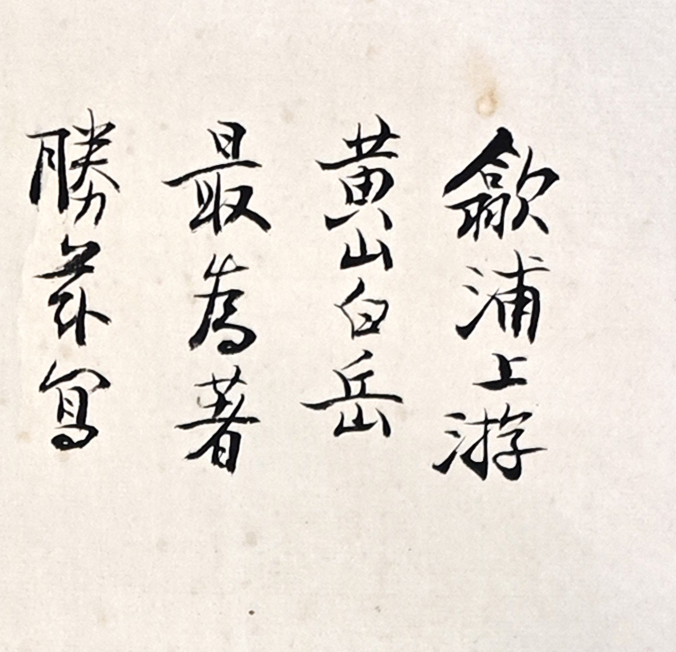 歙浦上游
黄山白岳
最為著
勝茲寫